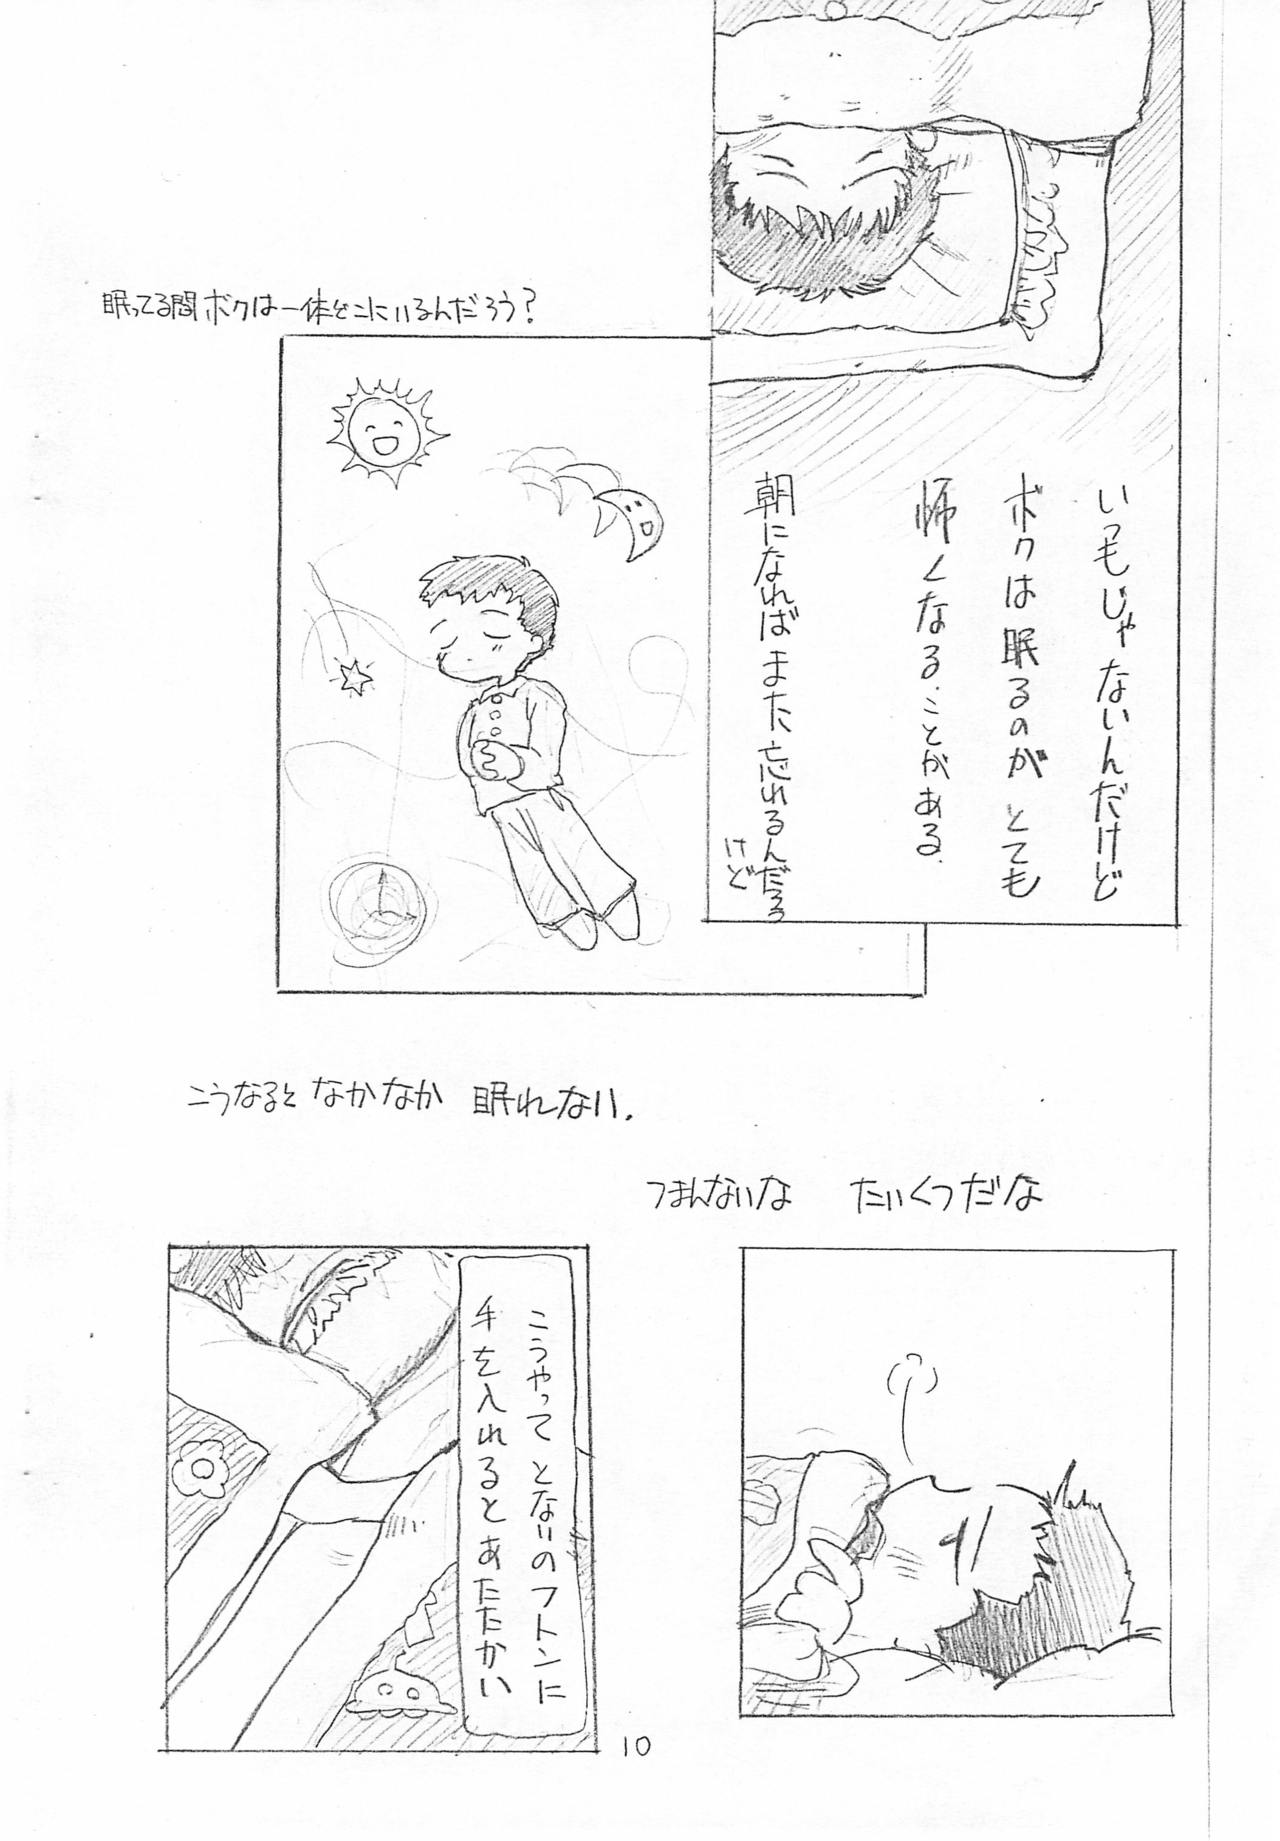 いつもじゃないんだけど
ボクは眠るのがとても
怖くなることがある.
朝になればまた忘れるんだろう
けど
眠ってる間ボクは一体どこにいるんだろう?
こうなると なかなか 眠れない.
つまんないな たいくつだな
こうやって となりのフトンに
手を入れるとあたたかい
10